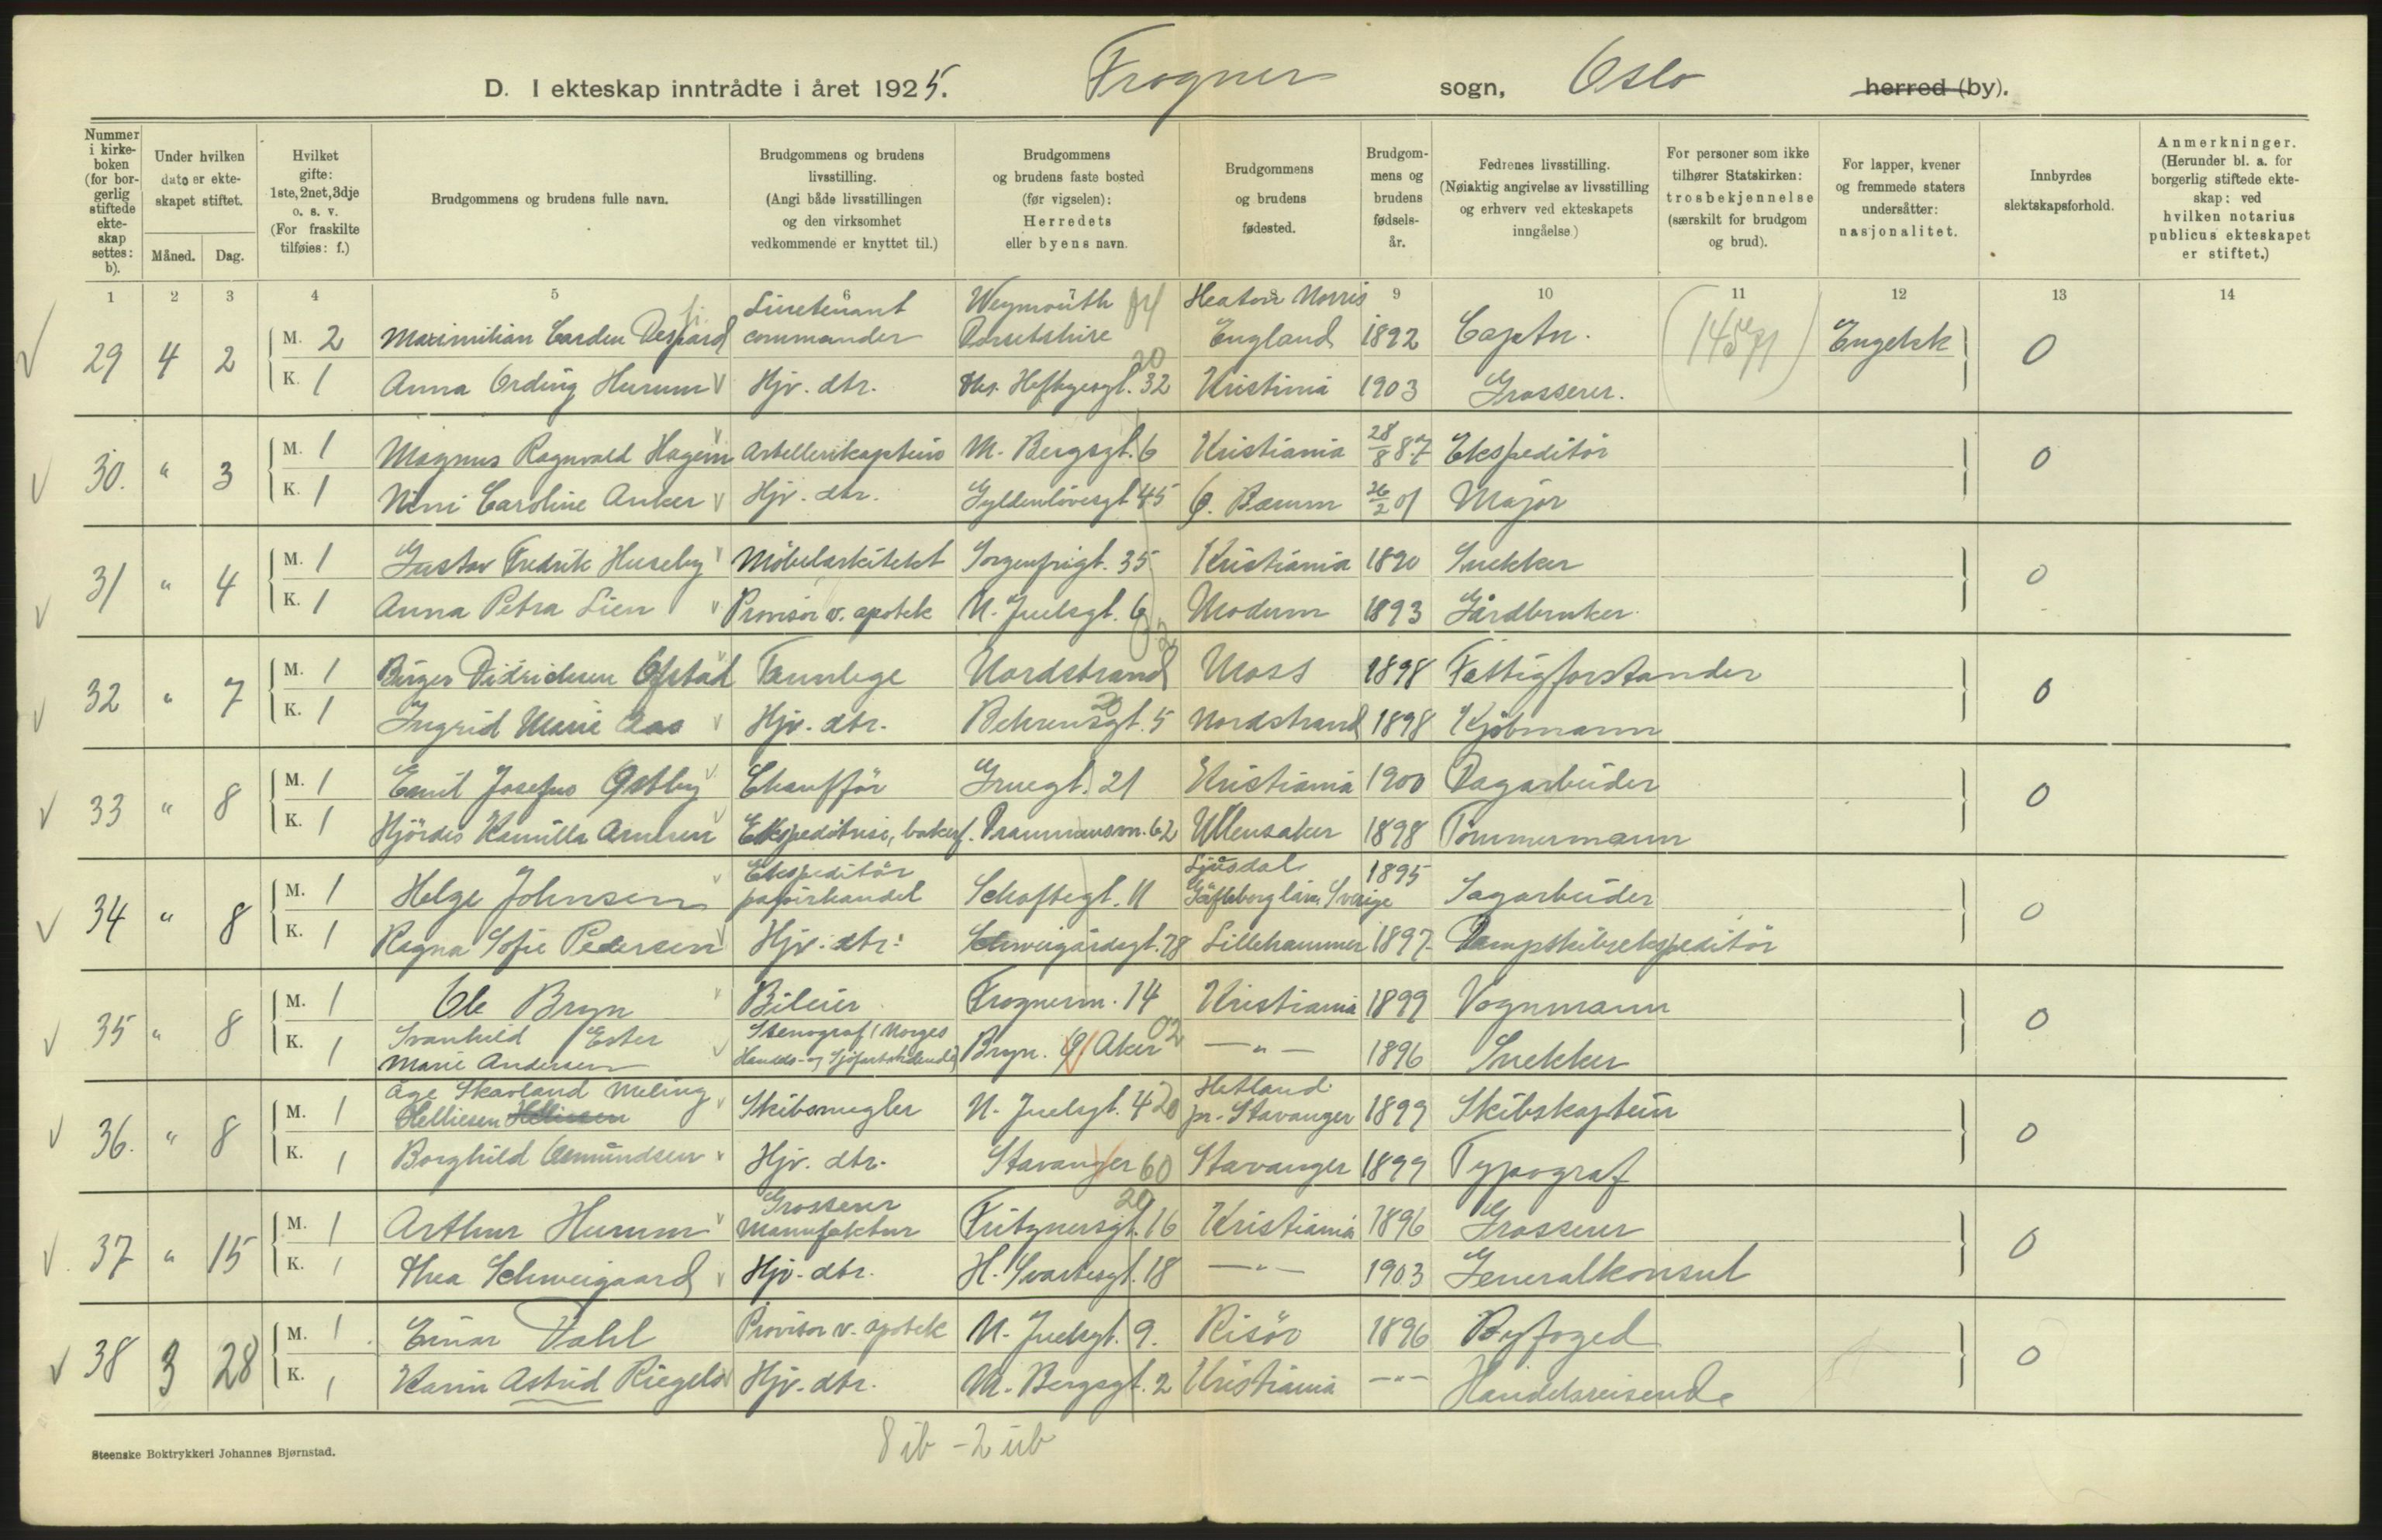 D. I ekteskap inntrådte i året 1925. Frogner sogn, Oslo herred (by).
Nummer i kirke-boken (for bor-gerlig stiftede ekte-skap settes: b).
Under hvilken dato er ekte-skapet stiftet.
Måned. Dag.
Hvilket gifte: 1ste, 2net, 3dje o. s. v. (For fraskilte tilføies: f.)
Brudgommens og brudens fulle navn.
Brudgommens og brudens livsstilling. (Angi både livsstillingen og den virksomhet vedkommende er knyttet til.)
Brudgommens og brudens faste bosted (før vigselen): Herredets eller byens navn.
Brudgommens og brudens fødested.
Brudgom-mens og brudens fødsels-år.
Fedrenes livsstilling. (Nøiaktig angivelse av livsstilling og erhverv ved ekteskapets inngåelse.)
For personer som ikke tilhører Statskirken: trosbekjennelse (særskilt for brudgom og brud).
For lapper, kvener og fremmede staters undersåtter: nasjonalitet.
Innbyrdes slektskapsforhold.
Anmerkninger. (Herunder bl. a. for borgerlig stiftede ekte-skap: ved hvilken notarius publicus ekteskapet er stiftet.)
1 2 3 4 5 6 7 8 9 10 11 12 13 14
29 4 2 M. 2 Maximilian Carden Despard Lieutenant commander Weymouth Dorsetshire Heaton Norris England 1892 Captn. Engelsk 0
K. 1 Anna Ording Hurum Hjv. dtr. Ths. Heftyesgt. 32 Kristiania 1903 Grosserer.
30. " 3 M. 1 Magnus Ragnvald Hagem Artellerikaptein M. Bergsgt. 6 Kristiania 28/8 87 Ekspeditör 0
K. 1 Nini Caroline Anker Hjv. dtr. Gyldenlövesgt 45 Ö. Bærum 26/2 01 Major
31 " 4 M. 1 Gustav Fredrik Huseby Möbelarkitekt Sorgenfrigt. 35 Kristiania 1890 Snekker 0
K. 1 Anna Petra Lien Provisor v. apotek N. Juelsgt. 6 Modum 1893 Gårdbruker
32 " 7 M. 1 Birger Didrichsen Ofstad Tannlege Nordstrand Moss 1898 Fattigforstander 0
K. 1 Ingrid Marie Aas Hjv. dtr. Behrensgt. 5 Nordstrand 1898 Kjöbmann
33 " 8 M. 1 Emil Josefus Østby Chaufför Gruegt. 21 Kristiania 1900 Dagarbeider 0
K. 1 Hjördis Kamilla Arnesen Ekspeditrise, bakerf. Drammensvn. 62 Ullensaker 1898 Tömmermann
34 " 8 M. 1 Helge Johnsen Ekspeditör papirhandel Schoftegt. 11 Ljusdal Gäfleborg län, Sverige 1895 Sagarbeider 0
K. 1 Ragna Sofie Pedersen Hjv. dtr. Schweigårdsgt. 78 Lillehammer 1897 Dampskibsekspeditör
35 " 8 M. 1 Ole Bryn Bileier Frognervn. 14 Kristiania 1899 Vognmann 0
K. 1 Svanhild Ester Marie Andersen Stenograf (Norges Handels- og Sjöfartstidende) Bryn. Ø. Aker 02 — " — 1896 Snekker
36. " 8 M. 1 Åge Skavland Meling Helliesen Skibsmegler N. Juelsgt. 4 20 Hetland pr. Stavanger 1899 Skibskaptein 0
K. 1 Borghild Osmundsen Hjv. dtr. Stavanger 60 Stavanger 1899 Typograf
37 " 15 M. 1 Arthur Hurum Grosserer Manufaktur Fritznersgt. 16 Kristiania 1896 Grosserer 0
K. 1 Thea Schweigaard Hjv. dtr. H. Svartesgt. 18 — " — 1903 Generalkonsul
38 3 28 M. 1 Einar Dahl Provisor v. apotek N. Juelsgt. 9. Risör 1896 Byfoged 0
K. 1 Karin Astrid Riegels Hjv. dtr. M. Bergsgt. 2 Kristiania — " — Handelsreisende
8 ib - 2 ub
Steenske Boktrykkeri Johannes Bjørnstad.